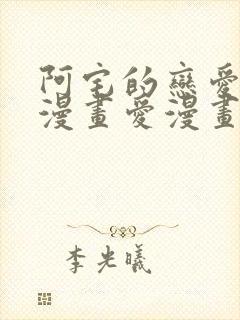 阿宅的戀愛
漫畫愛漫畫
李光曦